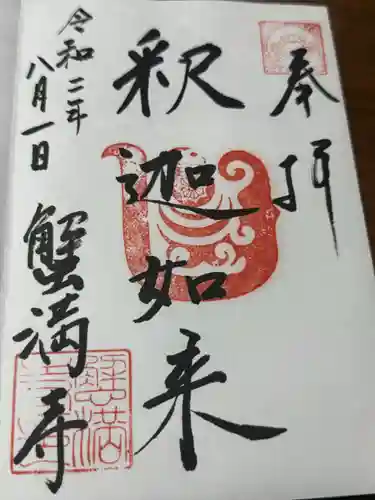 奉拝
釈迦如来
令和二年
八月一日
蟹満寺
蟹満寺